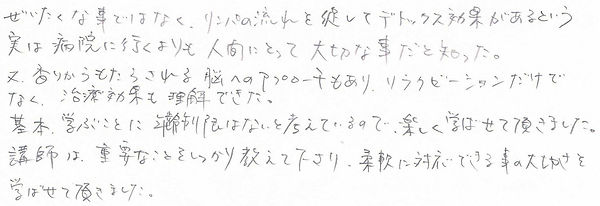 ぜいたくな事ではなく、リンパの流れを促してデトックス効果があるという
実は病院に行くよりも人間にとって大切な事だと知った。
又、香りからもたらされる脳へのアプローチもあり、リラクゼーションだけで
なく、治療効果も理解できた。
基本、学ぶことに年齢制限はないと考えているので、楽しく学ばせて頂きました。
講師は、重要なことをしっかり教えて下さり、柔軟に対応できる事の大切さを
学ばせて頂きました。